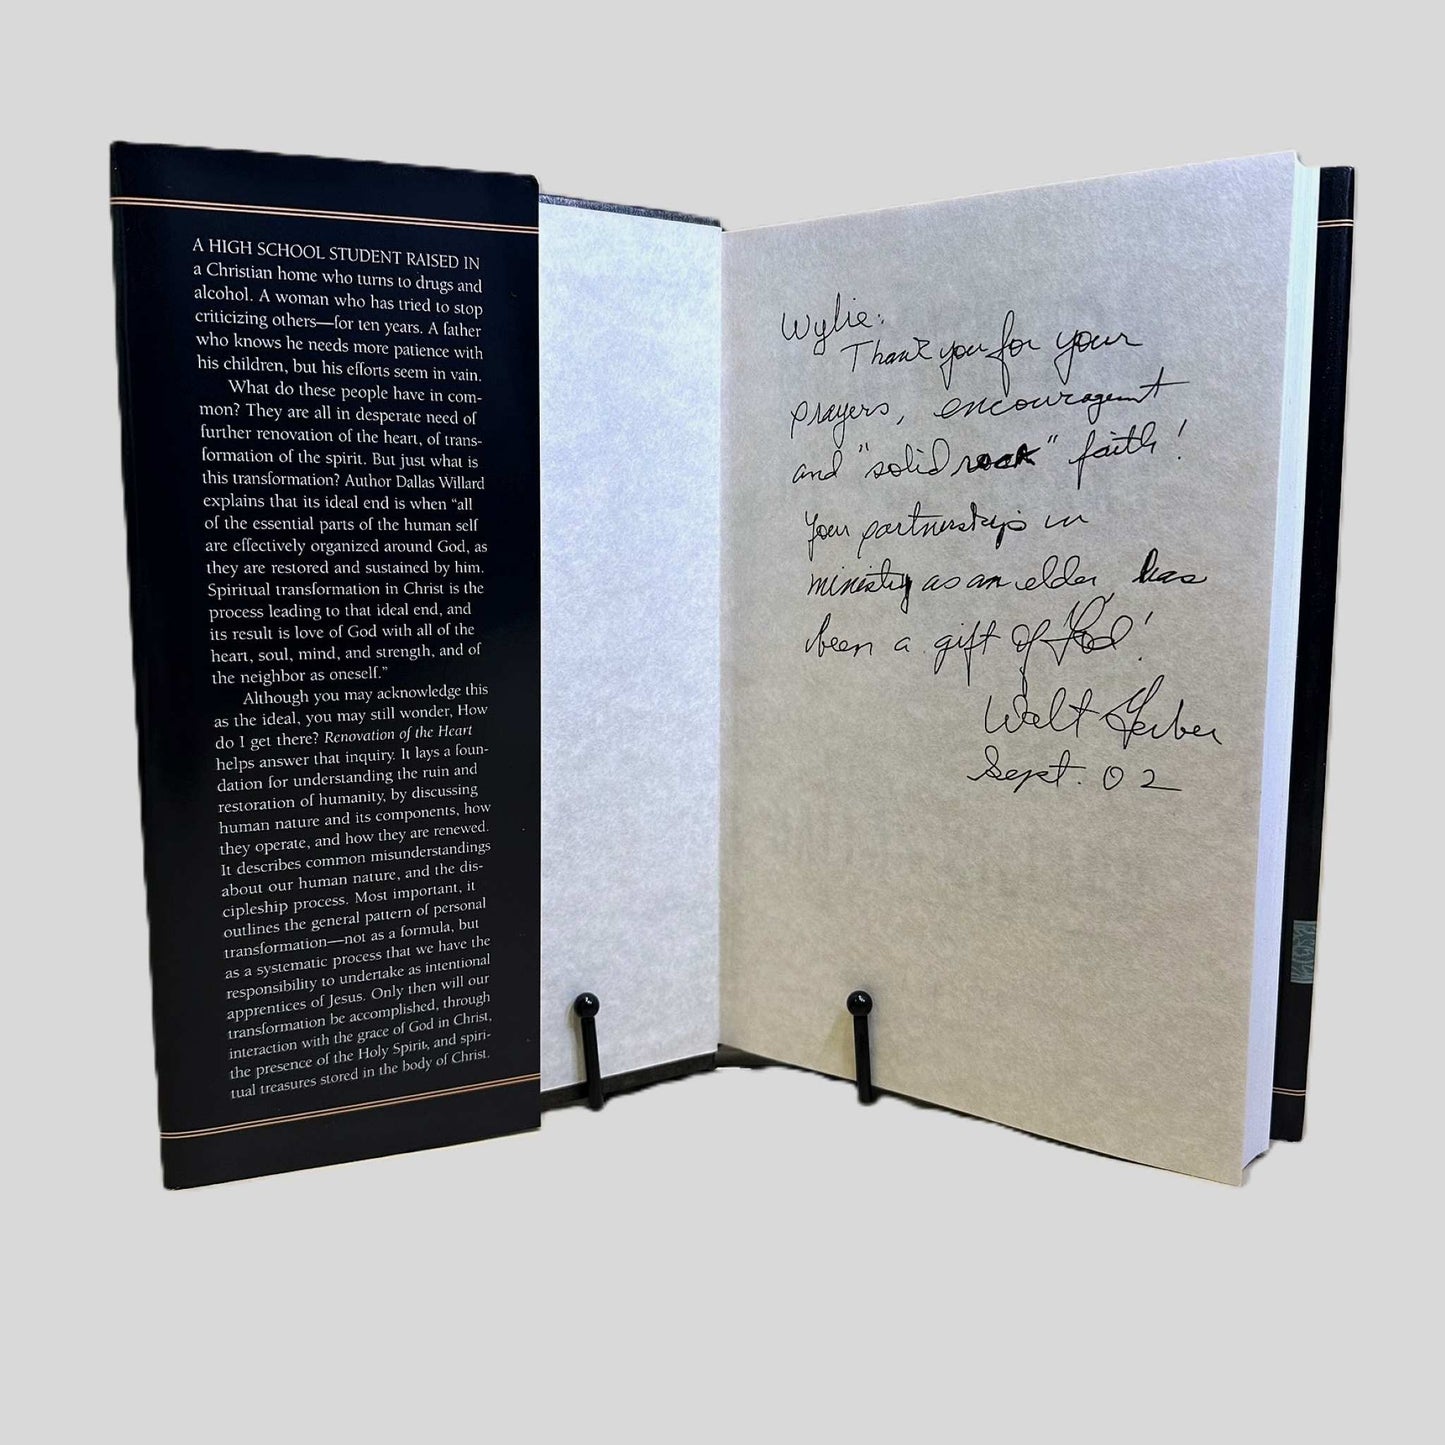 A HIGH SCHOOL STUDENT RAISED IN
a Christian home who turns to drugs and
alcohol. A woman who has tried to stop
criticizing others—for ten years. A father
who knows he needs more patience with
his children, but his efforts seem in vain.
What do these people have in com-
mon? They are all in desperate need of
further renovation of the heart, of trans-
formation of the spirit. But just what is
this transformation? Author Dallas Willard
explains that its ideal end is when “all
of the essential parts of the human self
are effectively organized around God, as
they are restored and sustained by him.
Spiritual transformation in Christ is the
process leading to that ideal end, and
its result is love of God with all of the
heart, soul, mind, and strength, and of
the neighbor as oneself.”
Although you may acknowledge this
as the ideal, you may still wonder, How
do I get there? Renovation of the Heart
helps answer that inquiry. It lays a foun-
dation for understanding the ruin and
restoration of humanity, by discussing
human nature and its components, how
they operate, and how they are renewed.
It describes common misunderstandings
about our human nature, and the dis-
cipleship process. Most important, it
outlines the general pattern of personal
transformation—not as a formula, but
as a systematic process that we have the
responsibility to undertake as intentional
apprentices of Jesus. Only then will our
transformation be accomplished, through
interaction with the grace of God in Christ,
the presence of the Holy Spirit, and spiri-
tual treasures stored in the body of Christ.
Wylie:
Thank you for your
prayers, encouragement
and "solid rock" faith!
Your partnership in
ministry as an elder, has
been a gift of God!
Walt Gerber
Sept. 02